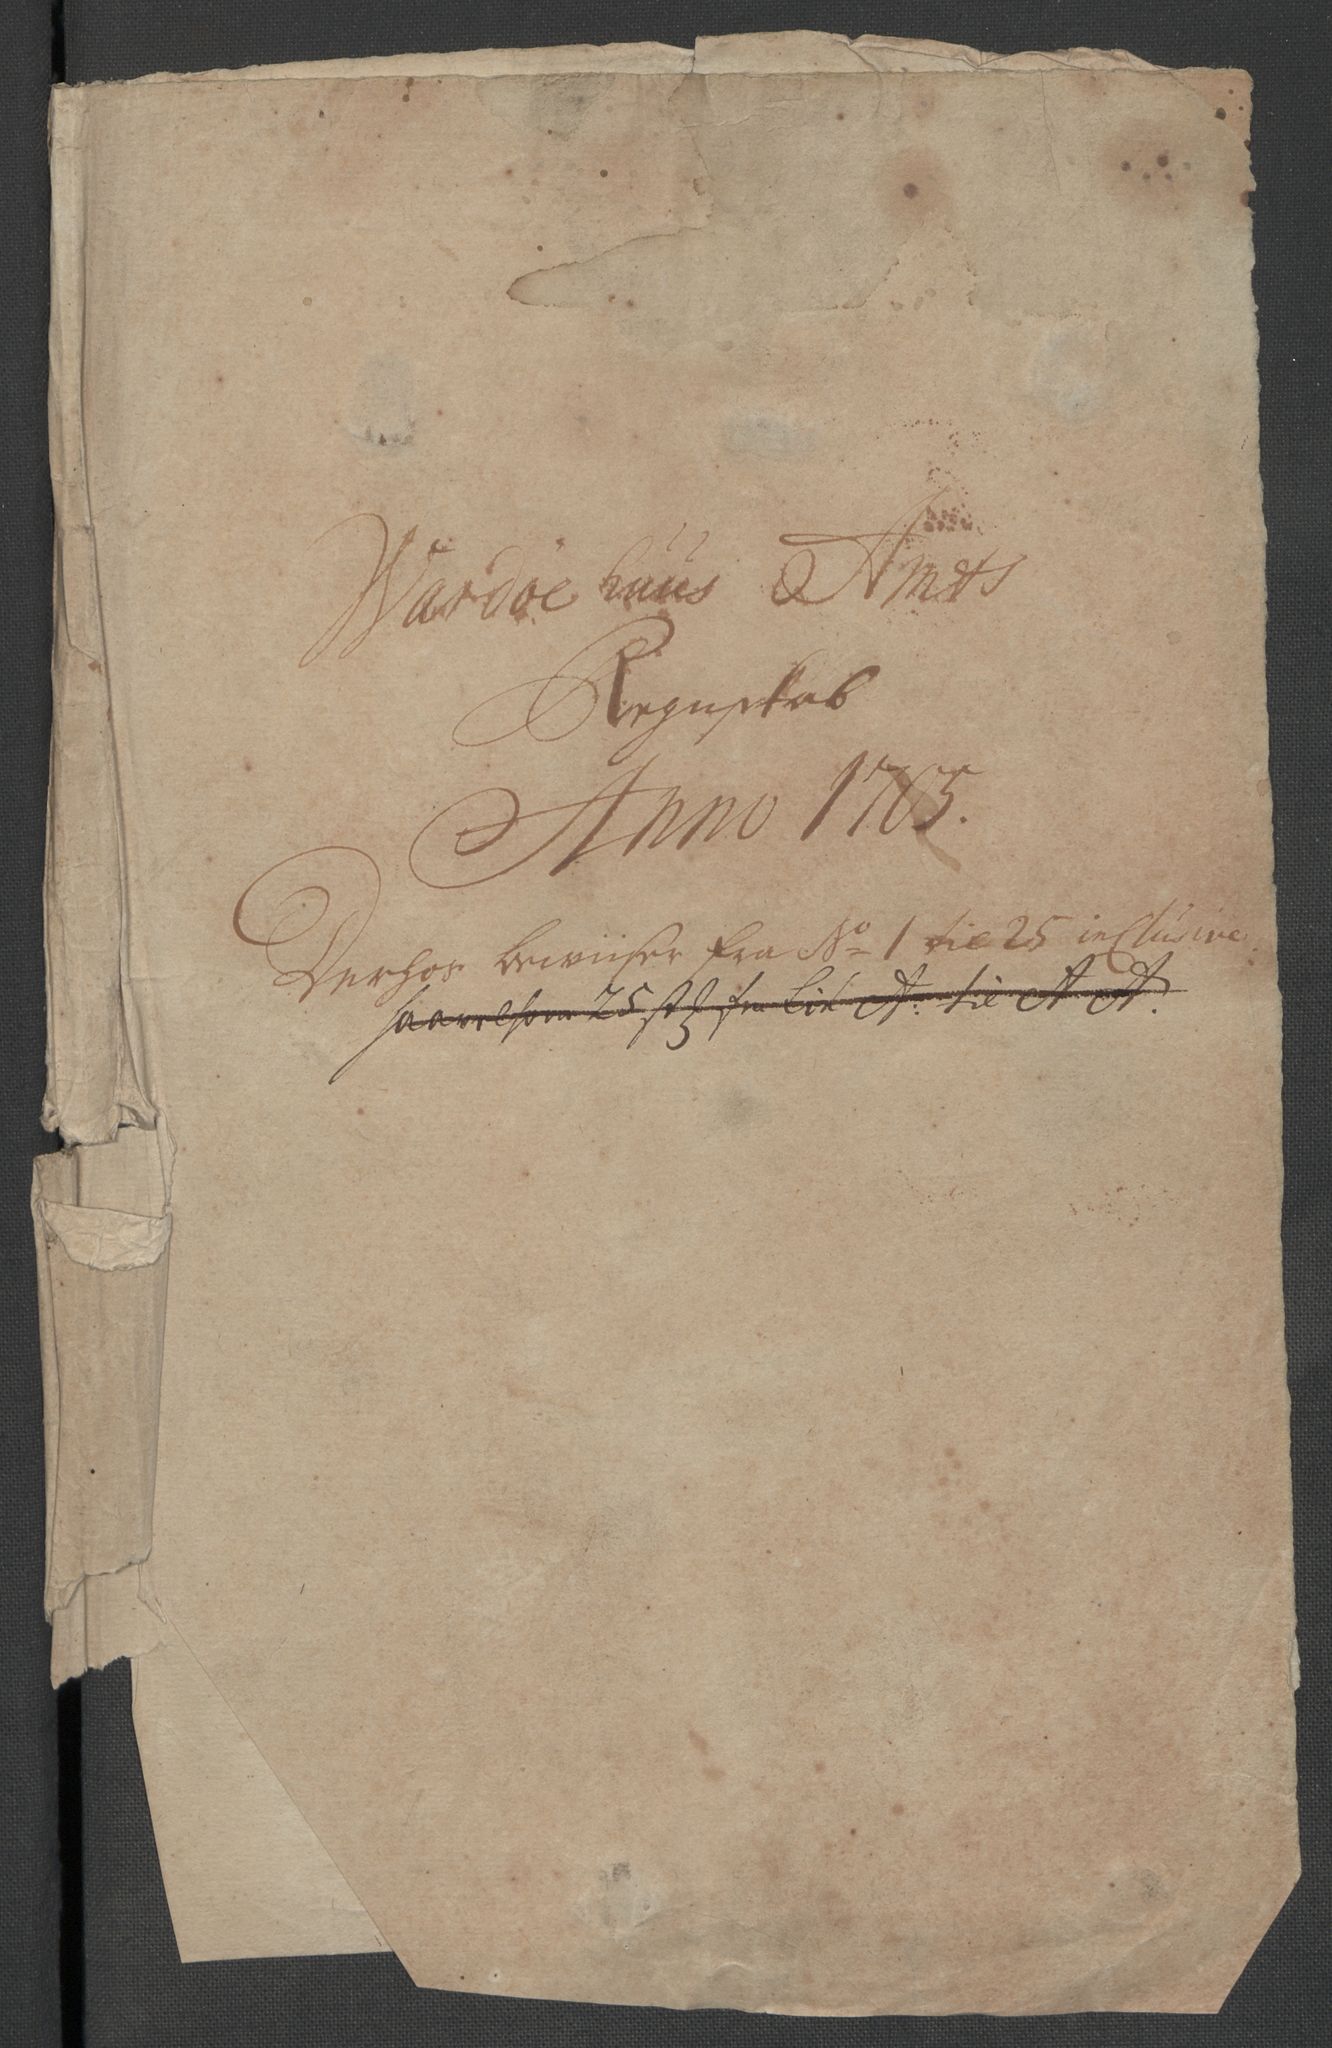 Wardøehuus Amts
Regnskab
Anno 1705.
Derhos bewiiser fra No 1 til 25 inclusive.
saavelsom 25 st. fra Lit A. til AA.